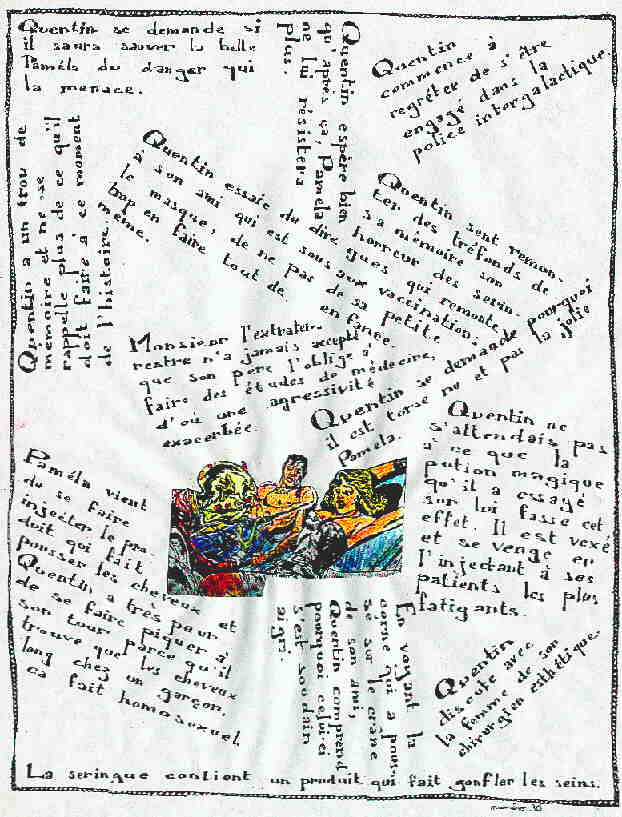 Quentin se demande si
il saura sauver la belle
Paméla du danger qui
la menace.
Quentin espère bien
qu'après ça, Pamela
ne lui résistera
plus.
Quentin
commence à
regréter de s'être
engagé dans la
police intergalactique.
Quentin a un trou de
mémoire et ne se
rappelle plus de ce qu'il
doit faire à ce moment
de l'histoire.
Quentin essaie du dire
à son ami qui est sous
le masque, de ne pas
trop en faire tout de
même.
Quentin sent remon-
ter des tréfonds de
sa mémoire son
horreur des serin-
gues qui remonte
aux vaccination
de sa petite
enfance.
Monsieur l'extrater-
restre n'a jamais accepté
que son père l'oblige à
faire des études de médecine,
d'où une agressivité
exacerbée.
Quentin se demande pourquoi
il est torse nu et pas la jolie
Pamela.
Quentin ne
s'attendais pas
à ce que la
potion magique
qu'il a essayé
sur lui fasse cet
effet. Il est vexé
et se venge en
l'injectant à ses
patients les plus
fatigants.
Paméla vient
de se faire
injecter le pro-
duit qui fait
pousser les cheveux et
Quentin a très peur
de se faire piquer à
son tour parce qu'il
trouve que les cheveux
long chez un garçon,
ca fait homosexuel
En voyant la
corne qui a pous-
sé sur le crâne
de son ami,
Quentin comprend
pourquoi celui-ci
s'est soudain
aigri.
Quentin
discute avec
la femme de son
chirurgien esthétique.
La seringue contient un produit qui fait gonfler les seins.